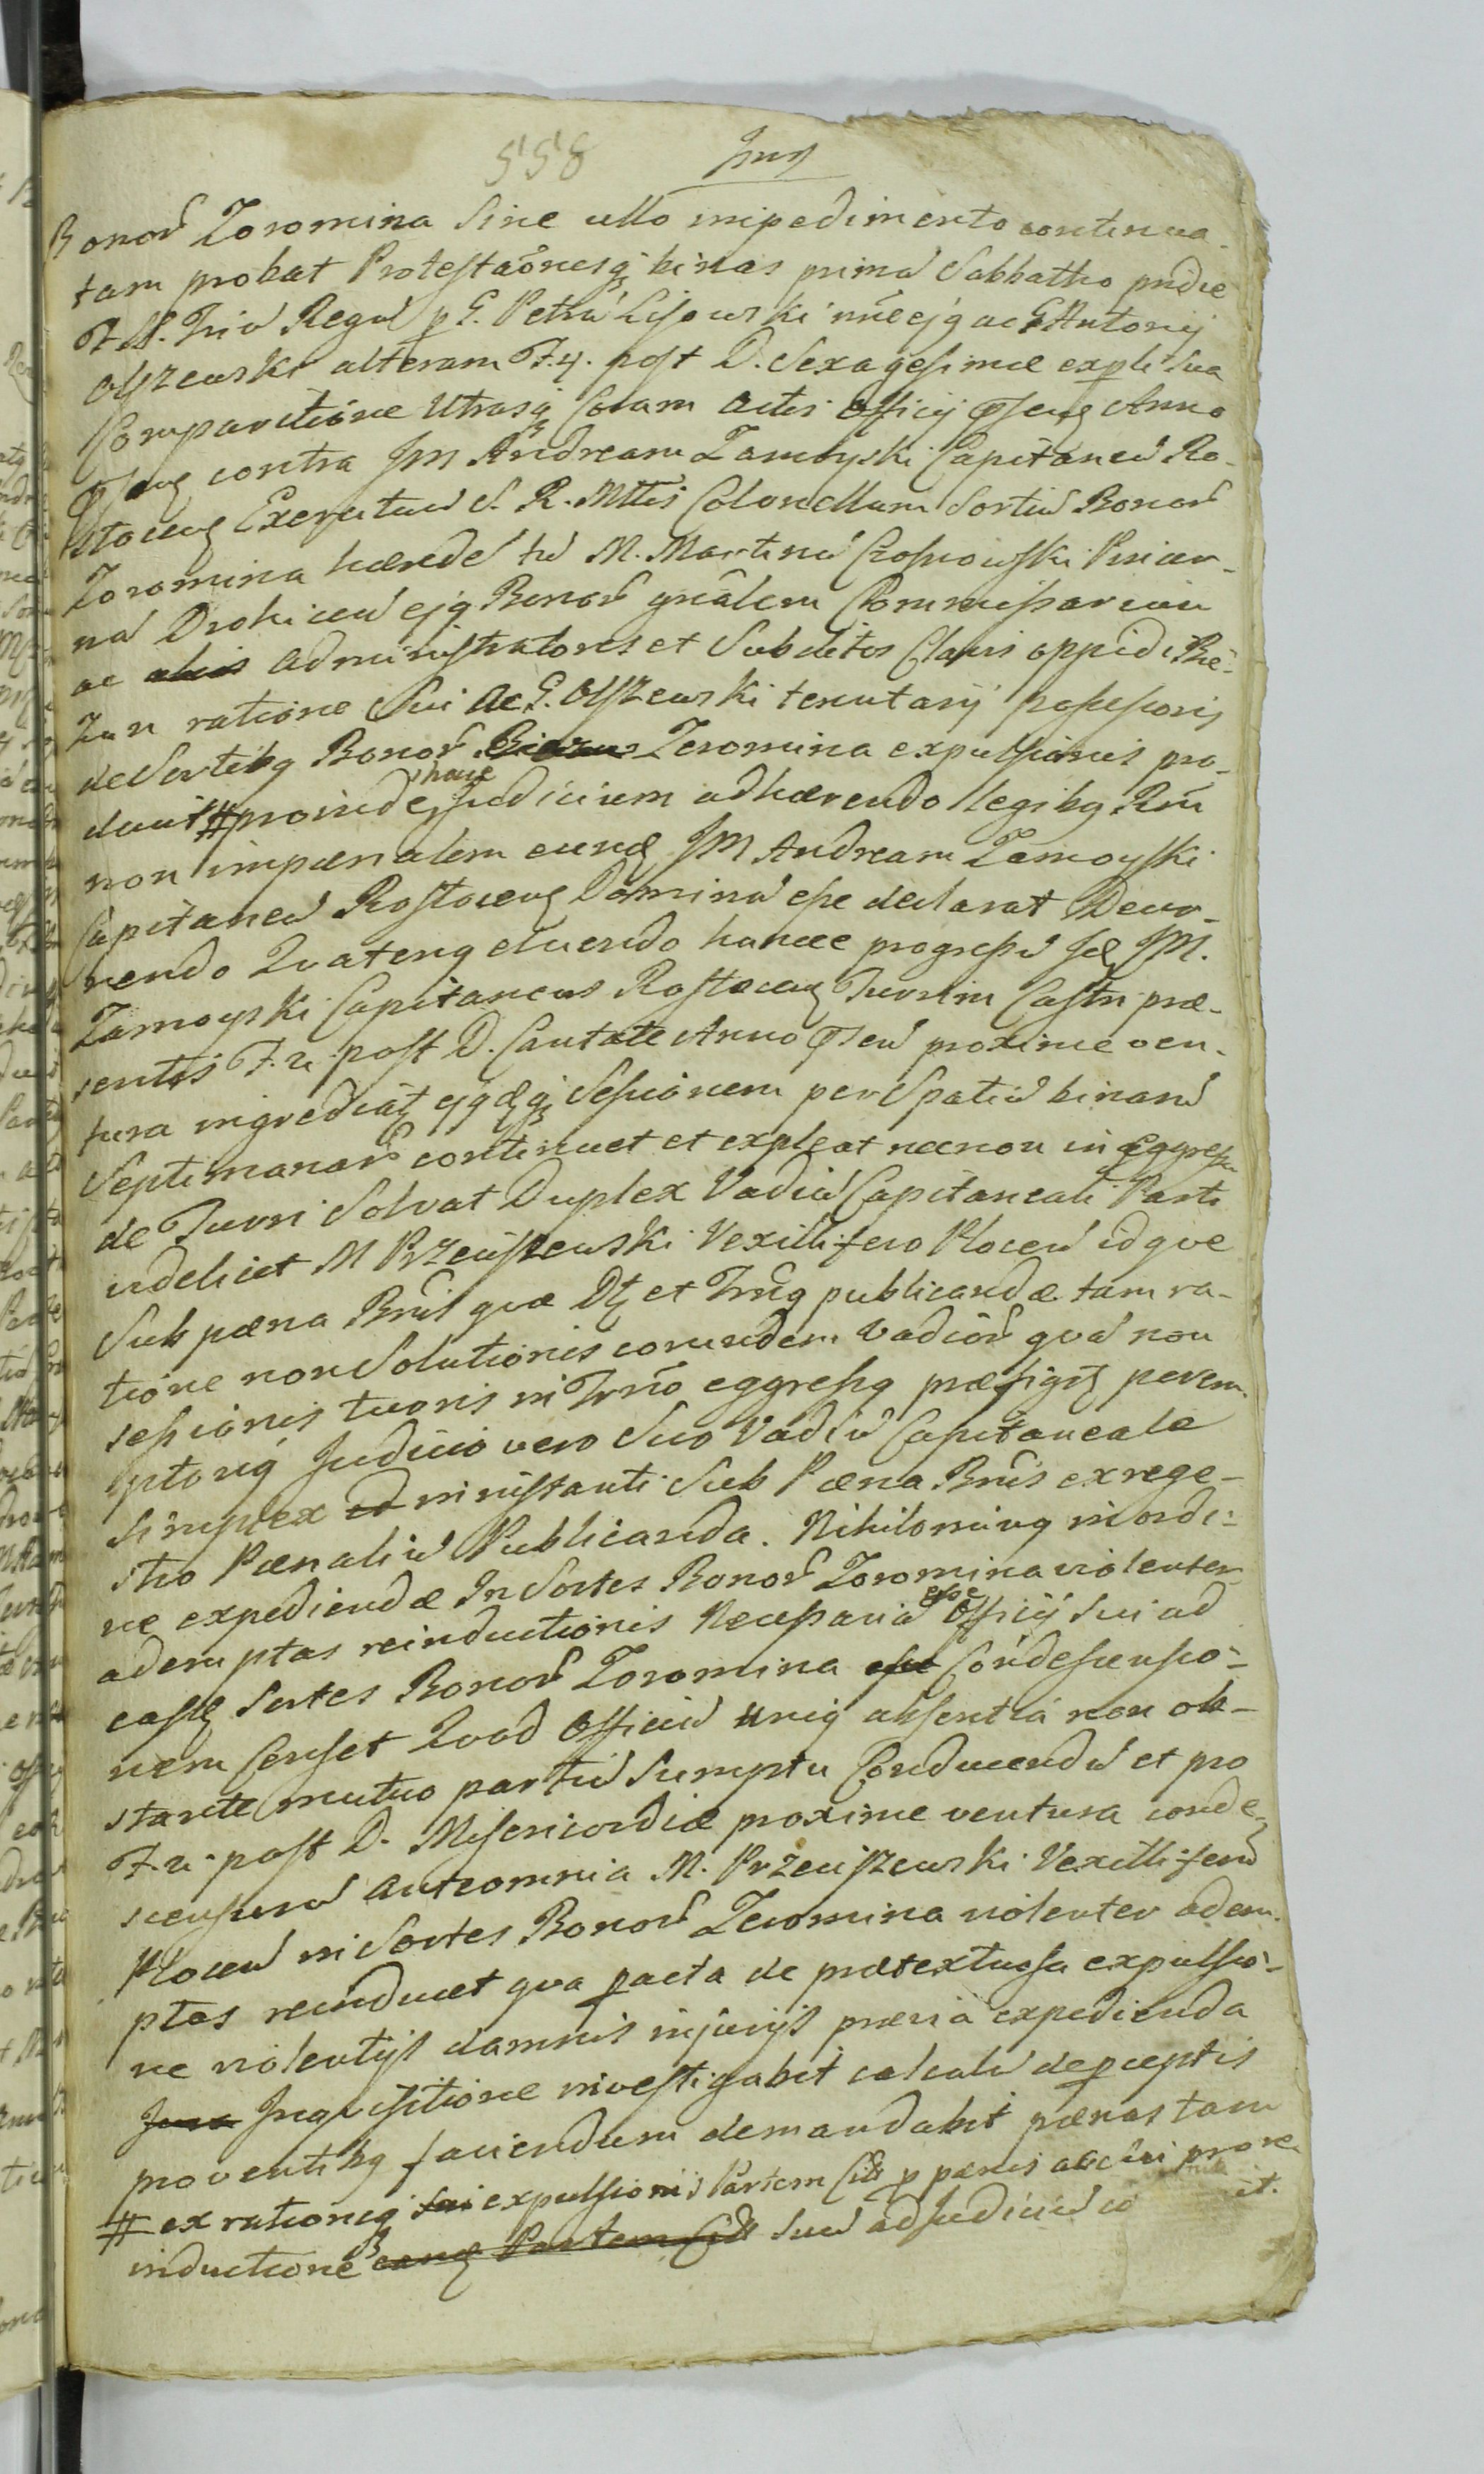 558
Bonor Zoromina Sine ullo impedimento continua-
tam probat Protestaōnesq binas prima Sabbatho pridie
F. S. Triu Regu p G. Petru Lisowski nne ejq ac G Antonij
Olszewski alteram F. 4. post D. Sexagesimæ expli sua
Comparitione Utrasq Coram Actis Officij Anno
contra JM Andream Zamoyski Capitaneu Ro-
stoceng Exercituu S. R. Mttis Colonellum Sortiu Bonor
Zoromina hærede tu M. Martinu Pincer-
na Drohiceu ejq Bonor gnâlem Commissarium
ac alios administratores et Subditos Clavis oppidi
ratione Sui ac G. Olszewski tenutarij possessoris
de Sortibq Bonor Zeromina expulsionis pro-
duut # proinde hocce Judicium adhærendo legibq Rni
non impænalem eund JM Andream Zamoyski
Capitaneu Rostoceng Dominu esse declarat Decer-
nendo Quatenq eluendo huncce progressu JM.
Zamoyski Capitaneus Rostoceng Turrim Castri præ-
sentis F. 2. post D. Cantate Anno proxime ven-
tura ingrediat ejqdq Sessionem per Spatiu binaru
Septimanar continuet et expleat necnon in eggressu
de Turri Solvat Duplex Vadiu Capitaneale Parti
videlicet M Przeciszewski Vexillifero Ploceu idque
Sub pæna Bnis quæ et publicandæ tam ra-
tione non Solutionis eorumdem Vadior qua non
sessionis turris in Trno eggressq præfigit perem-
ptoriq Judicio vero Suo Vadiu Capitaneale
Simplex in instanti Sub Pæna Bnis ex rege-
stro Pænaliu Publicanda. Nihilominuq in ordi-
ne expediendæ In Sortes Bonor Zoromina violenter
ademptas reinductionis Necessaria esse Officij Sui ad
easd Sortes Bonor Zoromina esse Condescensio-
nem Censet Quod Officiu uniq absentia non ob-
stante mutuo partiu Sumptu Conducendu et pro
F. 2. post D. Misericordiæ proxime ventura conde-
scensuru ante omnia M. Przeciszewski Vexilliferu
Ploceu in Sortes Bonor Zeromina violenter adem-
ptas reinducet qua pacta de prætextuosa expulsio-
ne violentijs damnis injurijs prævia expedienda
Inqvisitione investigabit calculu de perceptis
proventibq faciendum demandabit pænas tam
# ex rationeq sui expulsionis Partem p pænis
inductione eand Partem Suu ad Judiciu